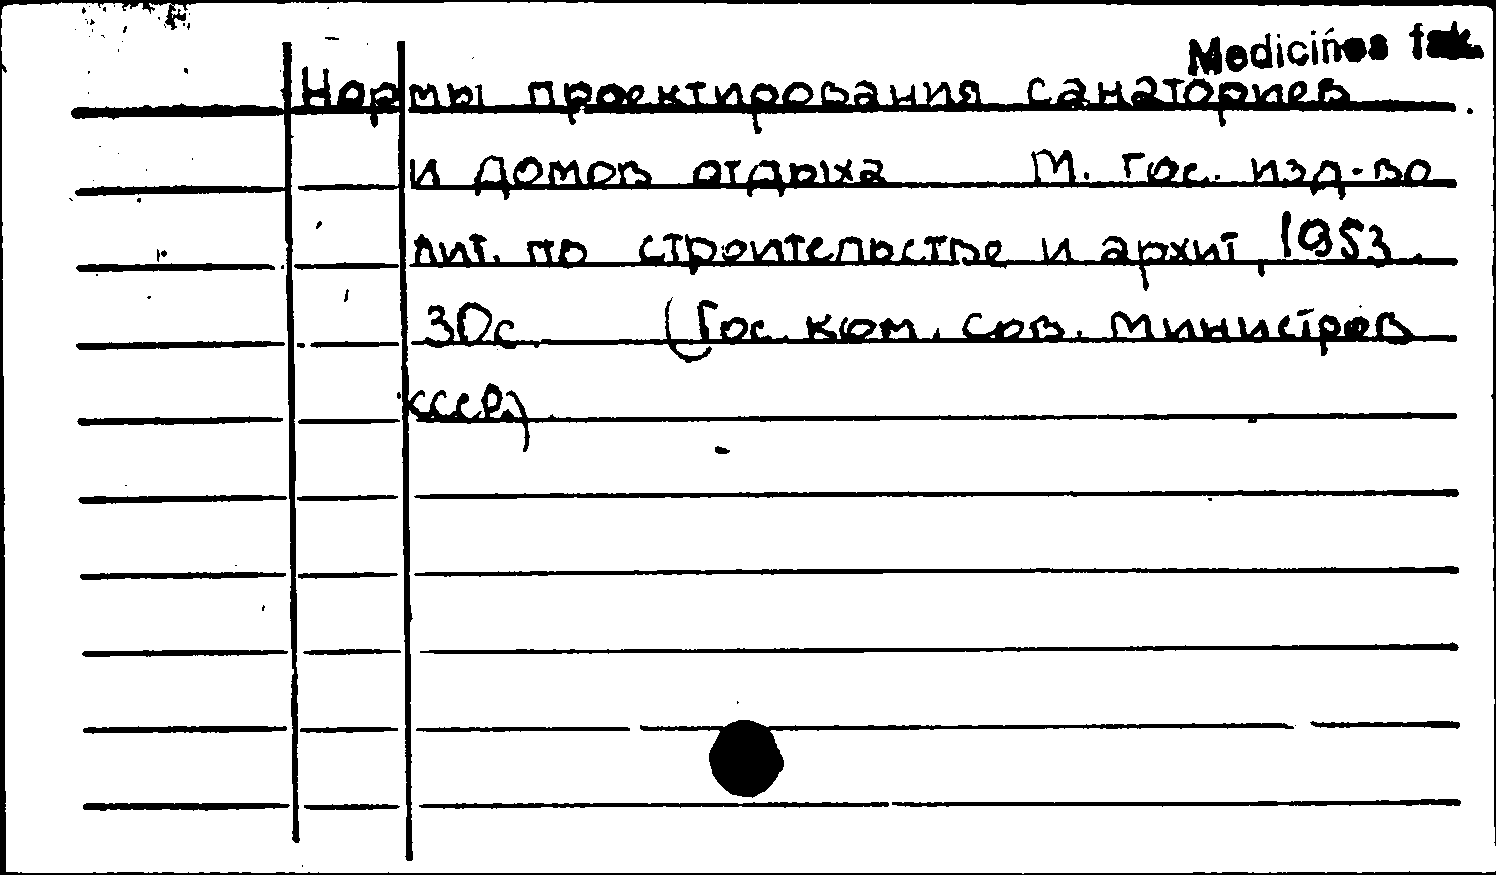 Medicīnes fak.
Нормы проектирования санаториев
и домов отдыха М. Гос. изд-во
лит. по строительстве и архит, 1953.
30с. (Гос. ком. сов. министров
СССР.)